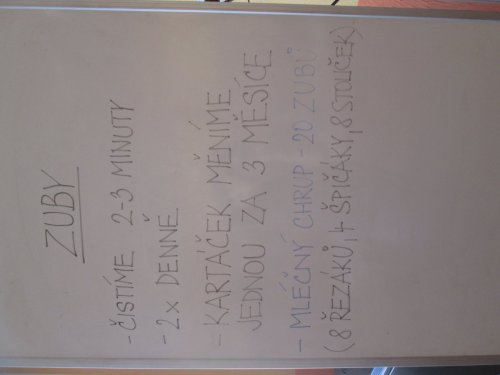 ZUBY
- ČISTÍME 2-3 MINUTY
- 2x DENNĚ
- KARTÁČEK MĚNÍME
JEDNOU ZA 3 MĚSÍCE
- MLÉČNÝ CHRUP - 20 ZUBŮ
(8 ŘEZÁKŮ, 4 ŠPIČÁKY, 8 STOLIČEK)